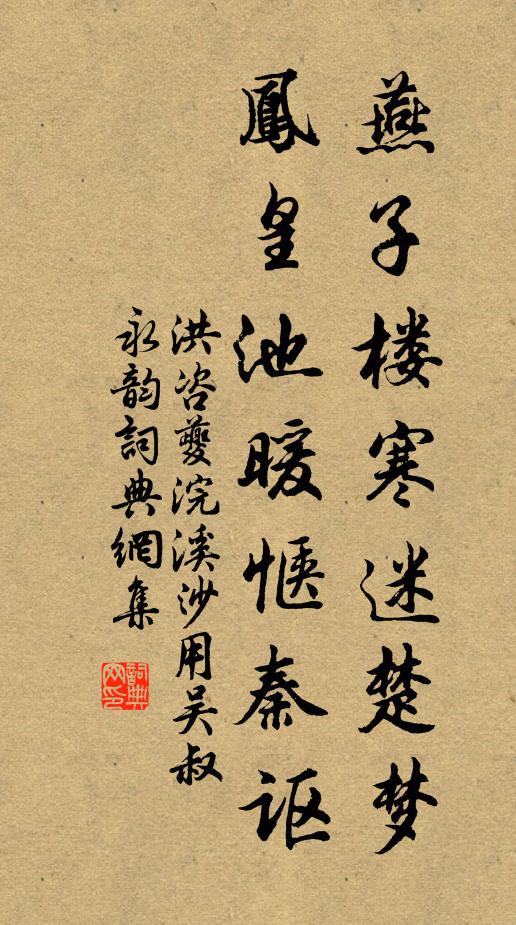 燕子楼寒迷楚梦
鳳皇池暖惬秦讴
洪咨夔浣溪沙用吴叔
永韵詞典網集
詞典网印